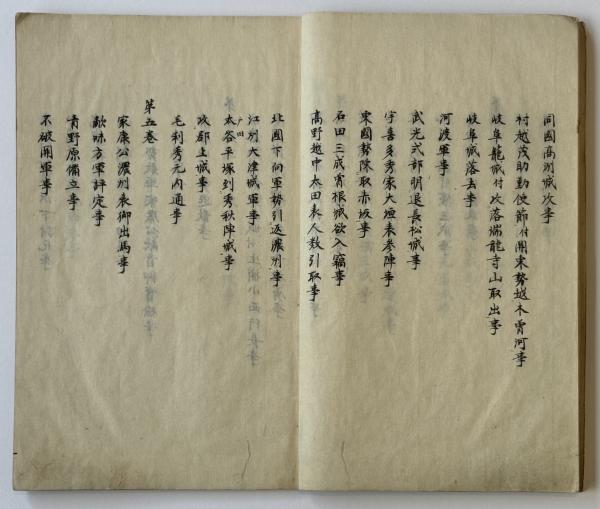 同國高別城攻事
村越茂助勤使節付関東勢越木曽河事
岐阜籠城付攻落瑞龍寺山取出事
岐阜城落去事
河渡軍事
武光式部明退長松城事
宇喜多秀家大垣表参陣事
東國勢陣取赤坂事
石田三成宵根城欲入竊事
高野越中太田表人数引取事
北國下向軍勢引返濃州事
江州大津城軍事
太谷平塚到秀秋陣城事
戸田
攻郡上城事
毛利秀元内通事
第五巻
家康公濃州表御出馬事
敵味方軍評定事
青野原備立事
不破関軍事